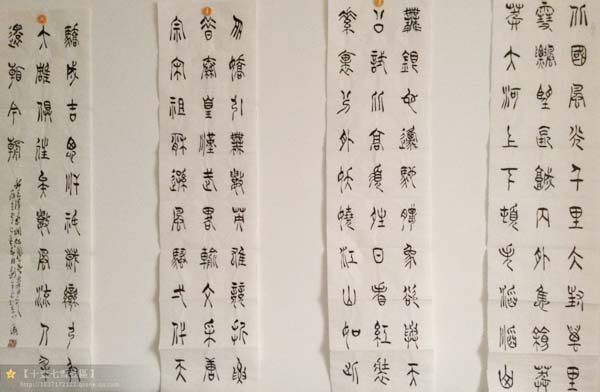 北國風光千里冰封萬里
雪飄望長城內外惟餘莽
莽大河上下頓失滔滔山
舞銀蛇原馳蠟象欲與天
公試比高須晴日看紅裝
素裹分外妖嬈江山如此
多嬌引無數英雄競折腰
惜秦皇漢武略輸文采唐
宗宋祖稍遜風騷一代天
驕成吉思汗只識彎弓射
大雕俱往矣數風流人物
還看今朝